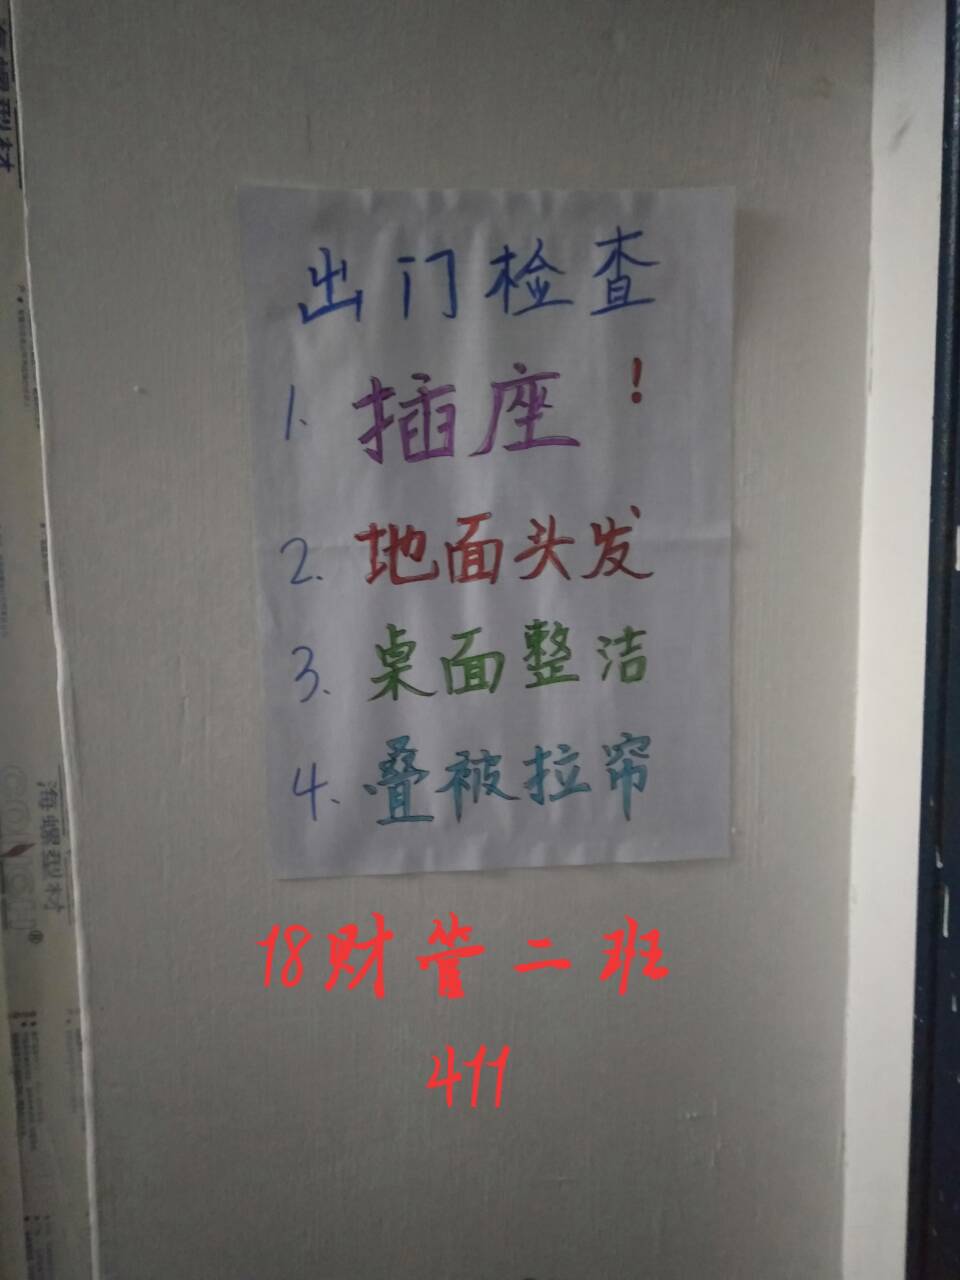 出门检查
1. 插座！
2. 地面头发
3. 桌面整洁
4. 叠被拉帘
18财管二班
411
海螺型材